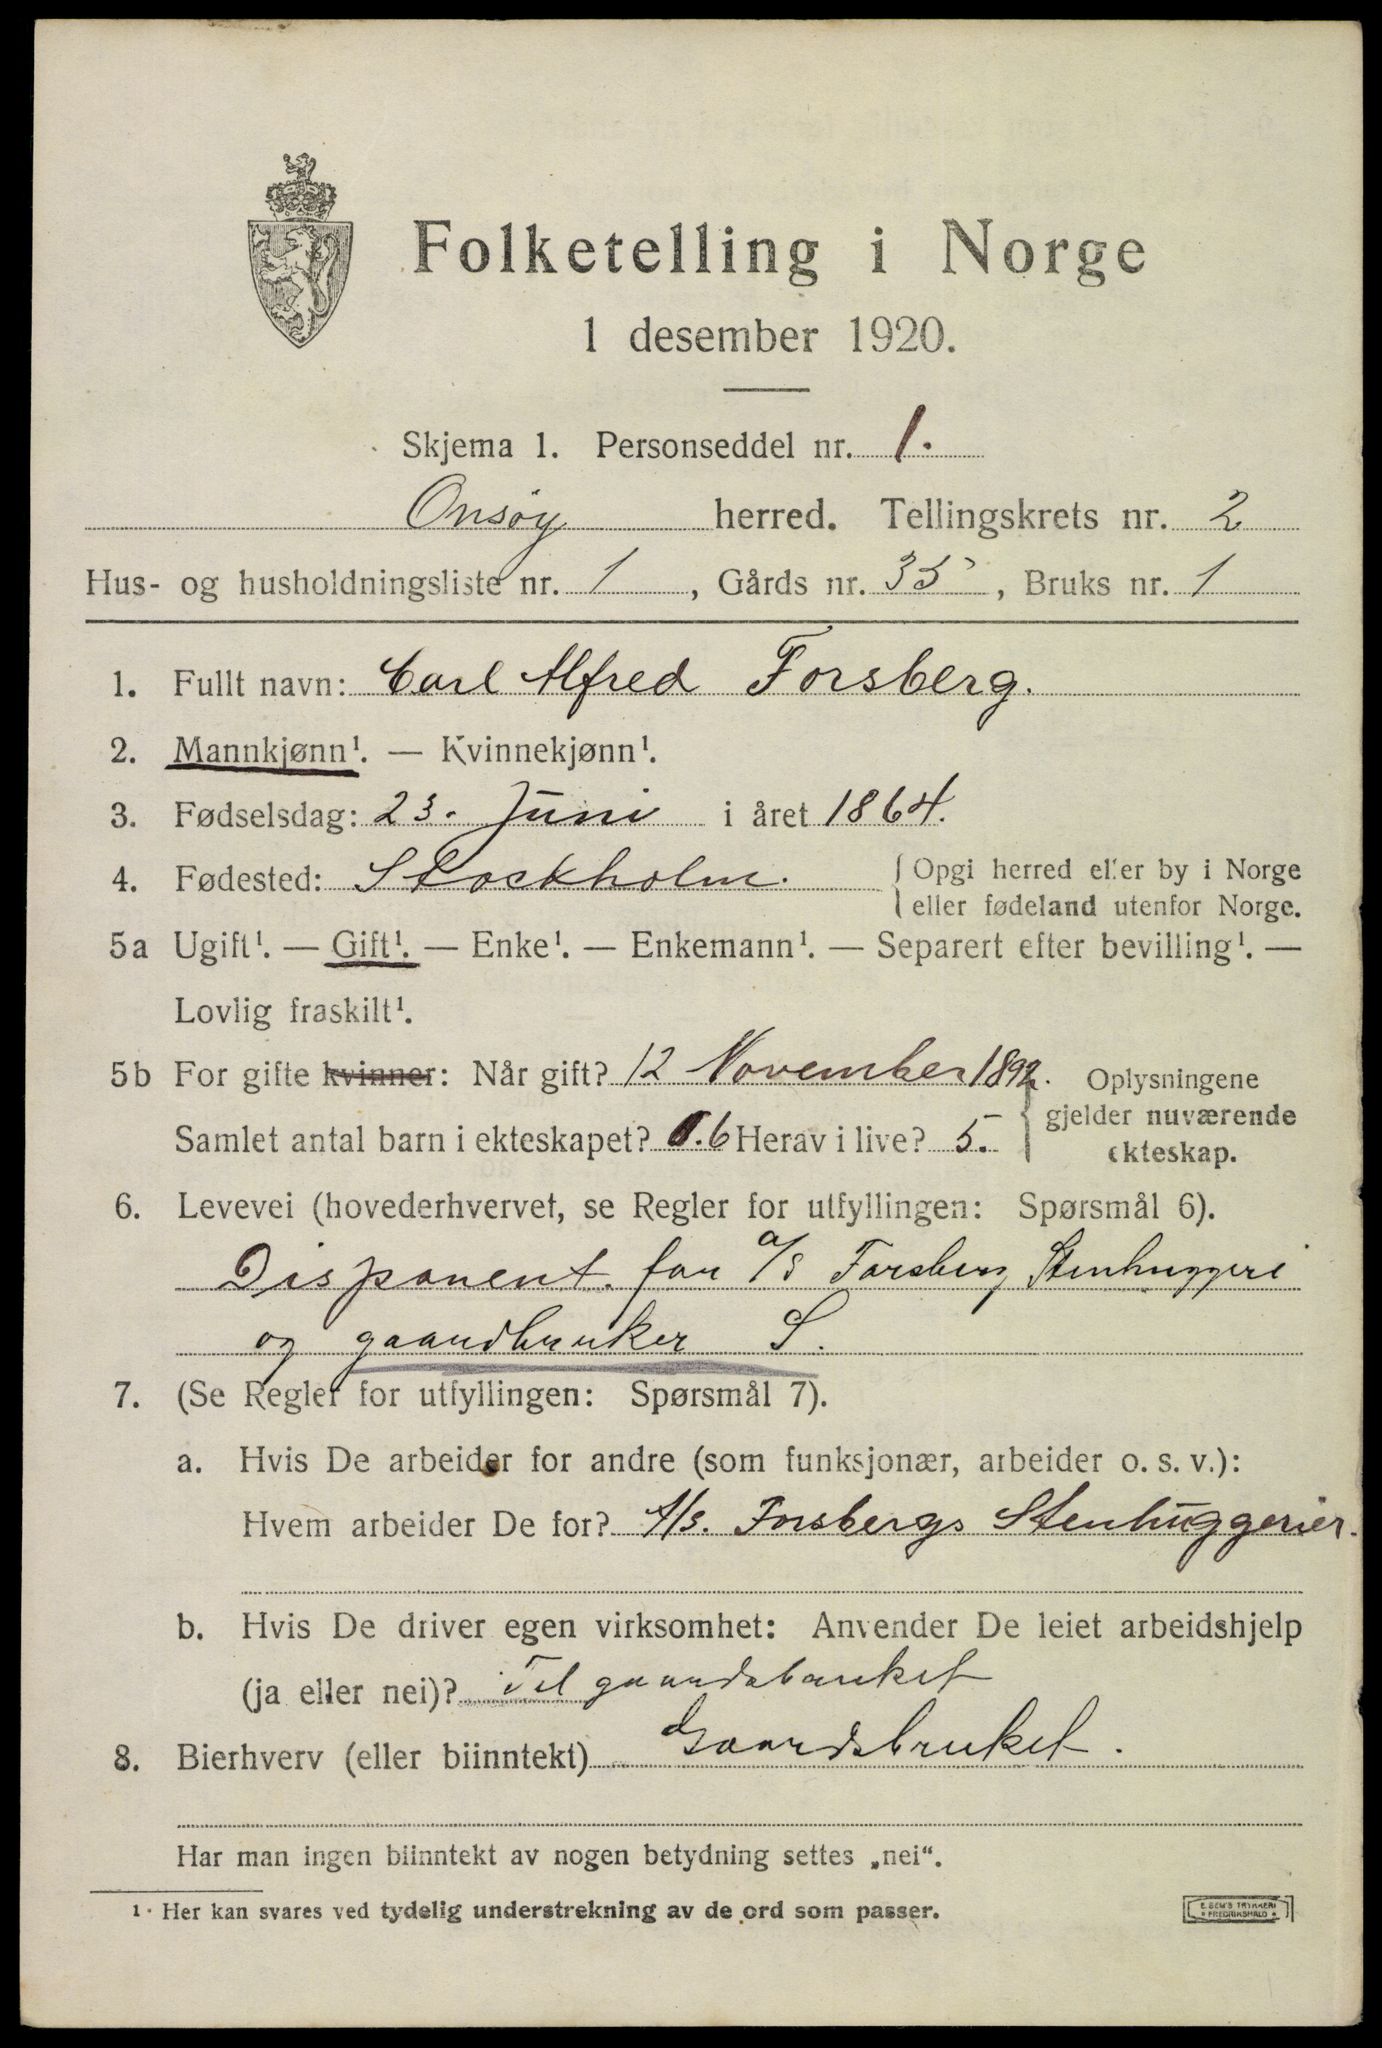 Folketelling i Norge
1 desember 1920.
Skjema 1. Personseddel nr. 1.
Onsøy herred. Tellingskrets nr. 2
Hus- og husholdningsliste nr. 1, Gårds nr. 35, Bruks nr. 1
1. Fullt navn: Carl Alfred Forsberg.
2. Mannkjønn¹. — Kvinnekjønn¹.
3. Fødselsdag: 23. Juni i året 1864.
4. Fødested: Stockholm. { Opgi herred eller by i Norge
eller fødeland utenfor Norge.
5a Ugift¹. — Gift¹. — Enke¹. — Enkemann¹. — Separert efter bevilling¹. —
Lovlig fraskilt¹.
5b For gifte kvinner: Når gift? 12 November 1892. Oplysningene
gjelder nuværende
Samlet antal barn i ekteskapet? 6 Herav i live? 5. ekteskap.
6. Levevei (hovederhvervet, se Regler for utfyllingen: Spørsmål 6).
Disponent for a/s Forsberg Stenhuggeri
og gaardbruker S.
7. (Se Regler for utfyllingen: Spørsmål 7).
a. Hvis De arbeider for andre (som funksjonær, arbeider o. s. v.):
Hvem arbeider De for? A/s. Forsbergs Stenhuggerier.
b. Hvis De driver egen virksomhet: Anvender De leiet arbeidshjelp
(ja eller nei)? Til gaardsbruket
8. Bierhverv (eller biinntekt) Gaardsbruket.
Har man ingen biinntekt av nogen betydning settes „nei“.
¹· Her kan svares ved tydelig understrekning av de ord som passer.
E. SEM'S TRYKKERI
* FREDRIKSHALD *